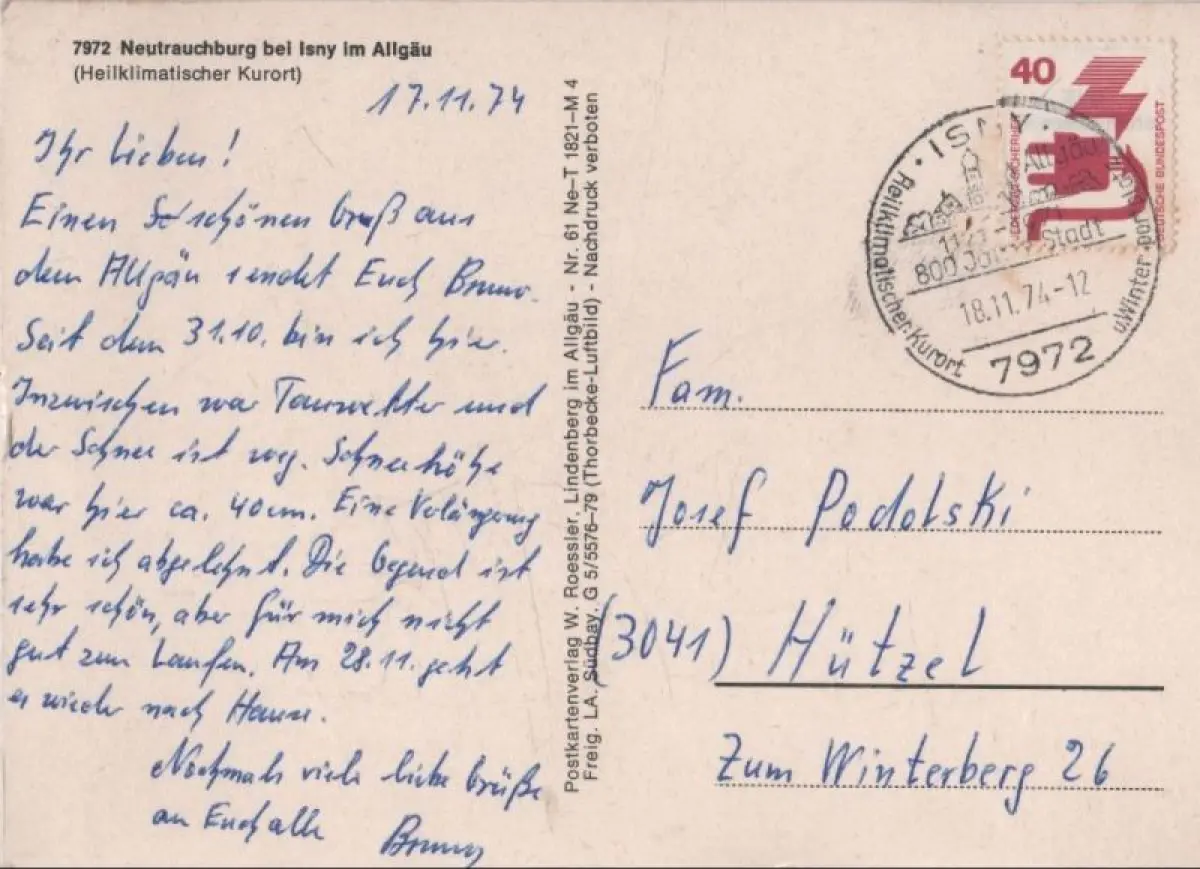 7972 Neutrauchburg bei Isny im Allgäu
(Heilklimatischer Kurort)
17.11.74
Ihr Lieben!
Einen schönen Gruß aus
dem Allgäu sendet Euch Bruno.
Seit dem 31.10. bin ich hier.
Inzwischen war Tauwetter und
der Schnee ist weg. Schneehöhe
war hier ca. 40cm. Eine Verlängerung
habe ich abgelehnt. Die Gegend ist
sehr schön, aber für mich nicht
gut zum Laufen. Am 28.11. geht
es wieder nach Hause.
Nochmals viele liebe Grüße
an Euch alle
Bruno
Postkartenverlag W. Roessler, Lindenberg im Allgäu - Nr. 61 Ne-T 1821-M 4
Freig. LA. Südbay. G 5/5576-79 (Thorbecke-Luftbild) - Nachdruck verboten
40
DEUTSCHE BUNDESPOST
· ISNY ·
Allgäu
800 Jahre Stadt
18.11.74-12
7972
Heilklimatischer-Kurort
u.Winter
Fam.
Josef Podolski
(3041) Hützel
Zum Winterberg 26